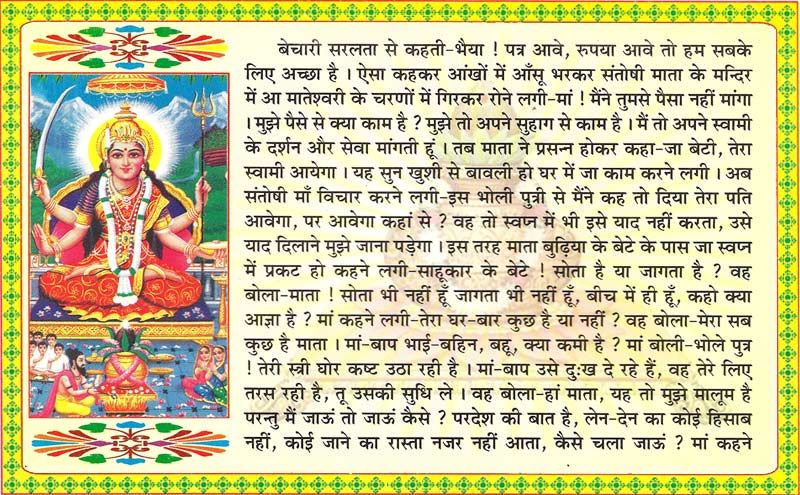 बेचारी सरलता से कहती-भैया ! पत्र आवे, रुपया आवे तो हम सबके
लिए अच्छा है । ऐसा कहकर आंखों में आँसू भरकर संतोषी माता के मन्दिर
में आ मातेश्वरी के चरणों में गिरकर रोने लगी-मां ! मैंने तुमसे पैसा नहीं मांगा
। मुझे पैसे से क्या काम है ? मुझे तो अपने सुहाग से काम है । मैं तो अपने स्वामी
के दर्शन और सेवा मांगती हूं । तब माता ने प्रसन्न होकर कहा-जा बेटी, तेरा
स्वामी आयेगा । यह सुन खुशी से बावली हो घर में जा काम करने लगी । अब
संतोषी माँ विचार करने लगी-इस भोली पुत्री से मैंने कह तो दिया तेरा पति
आवेगा, पर आवेगा कहां से ? वह तो स्वप्न में भी इसे याद नहीं करता, उसे
याद दिलाने मुझे जाना पड़ेगा । इस तरह माता बुढ़िया के बेटे के पास जा स्वप्न
में प्रकट हो कहने लगी-साहूकार के बेटे ! सोता है या जागता है ? वह
बोला-माता ! सोता भी नहीं हूँ जागता भी नहीं हूँ, बीच में ही हूँ, कहो क्या
आज्ञा है ? मां कहने लगी-तेरा घर-बार कुछ है या नहीं ? वह बोला-मेरा सब
कुछ है माता । मां-बाप भाई-बहिन, बहू, क्या कमी है ? मां बोली-भोले पुत्र
! तेरी स्त्री घोर कष्ट उठा रही है । मां-बाप उसे दुःख दे रहे हैं, वह तेरे लिए
तरस रही है, तू उसकी सुधि ले । वह बोला-हां माता, यह तो मुझे मालूम है
परन्तु मैं जाऊं तो जाऊं कैसे ? परदेश की बात है, लेन-देन का कोई हिसाब
नहीं, कोई जाने का रास्ता नजर नहीं आता, कैसे चला जाऊं ? मां कहने